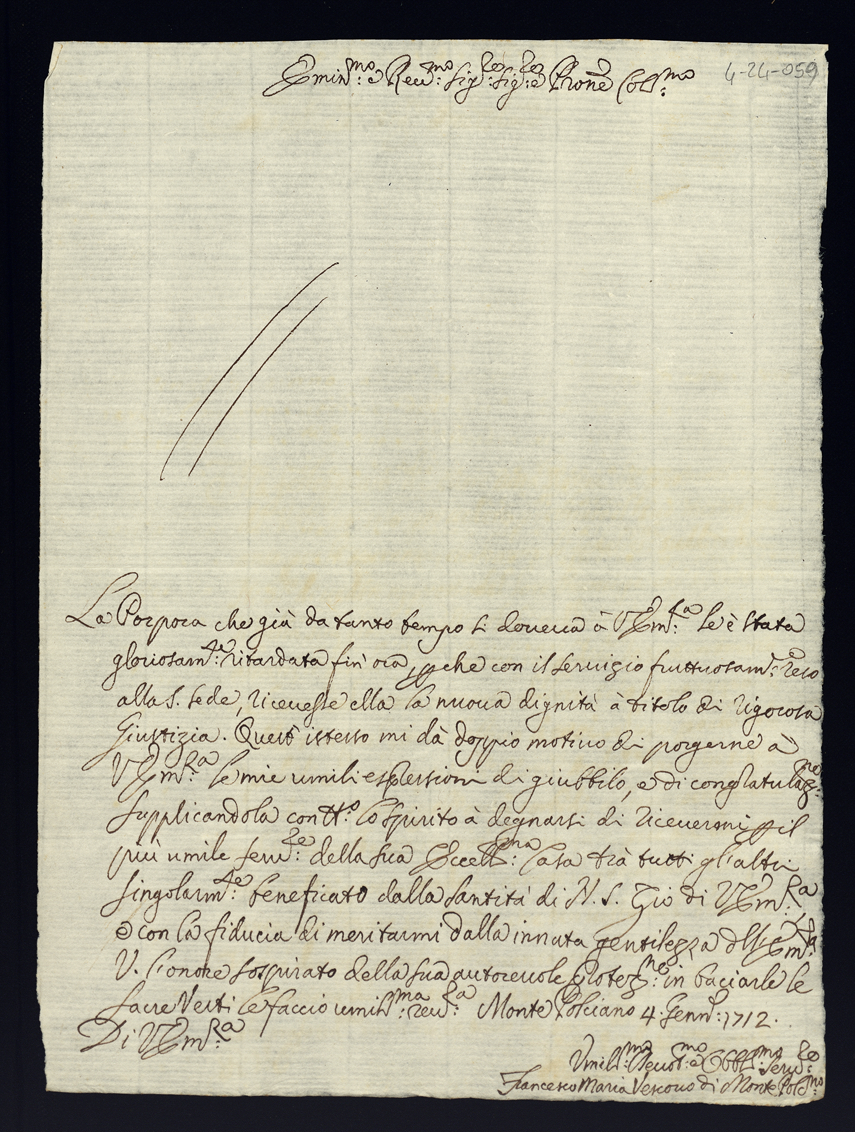 Emin.mo e Reu.mo Sig.re Sig.re e Prone Coll.mo
4-24-059
La Porpora che già da tanto tempo si doueua à V. Em.a le è stata
gloriosam.te ritardata fin'ora, p che con il seruigio fruttuosam.e reso
alla S. Sede, riceuesse ella la nuoua dignità à titolo di rigorosa
Giustizia. Questo istesso mi dà doppio motiuo di porgerne à
V. Em.ra le mie umili espressioni di giubbilo, e di congratulaz.ne
supplicandola con tt.o lo spirito à degnarsi di riceuermi p il
più umile seru.re della sua Eccell.ma Casa trà tutti gl'altri
singolarm.te beneficato dalla Santità di N. S. Zio di V. Em.ra
e con la fiducia di meritarmi dalla innata gentilezza dell' Em.za
V. l'onore sospirato della sua autoreuole protez.ne in baciarle le
sacre Vesti le faccio umil.ma reu.a Monte Pulciano 4. Genn.o 1712.
Di V. Em.ra
Vmil.mo Deuot.mo e Obbl.mo Seru.re
Francesco Maria Vescouo di Monte Pulc.no